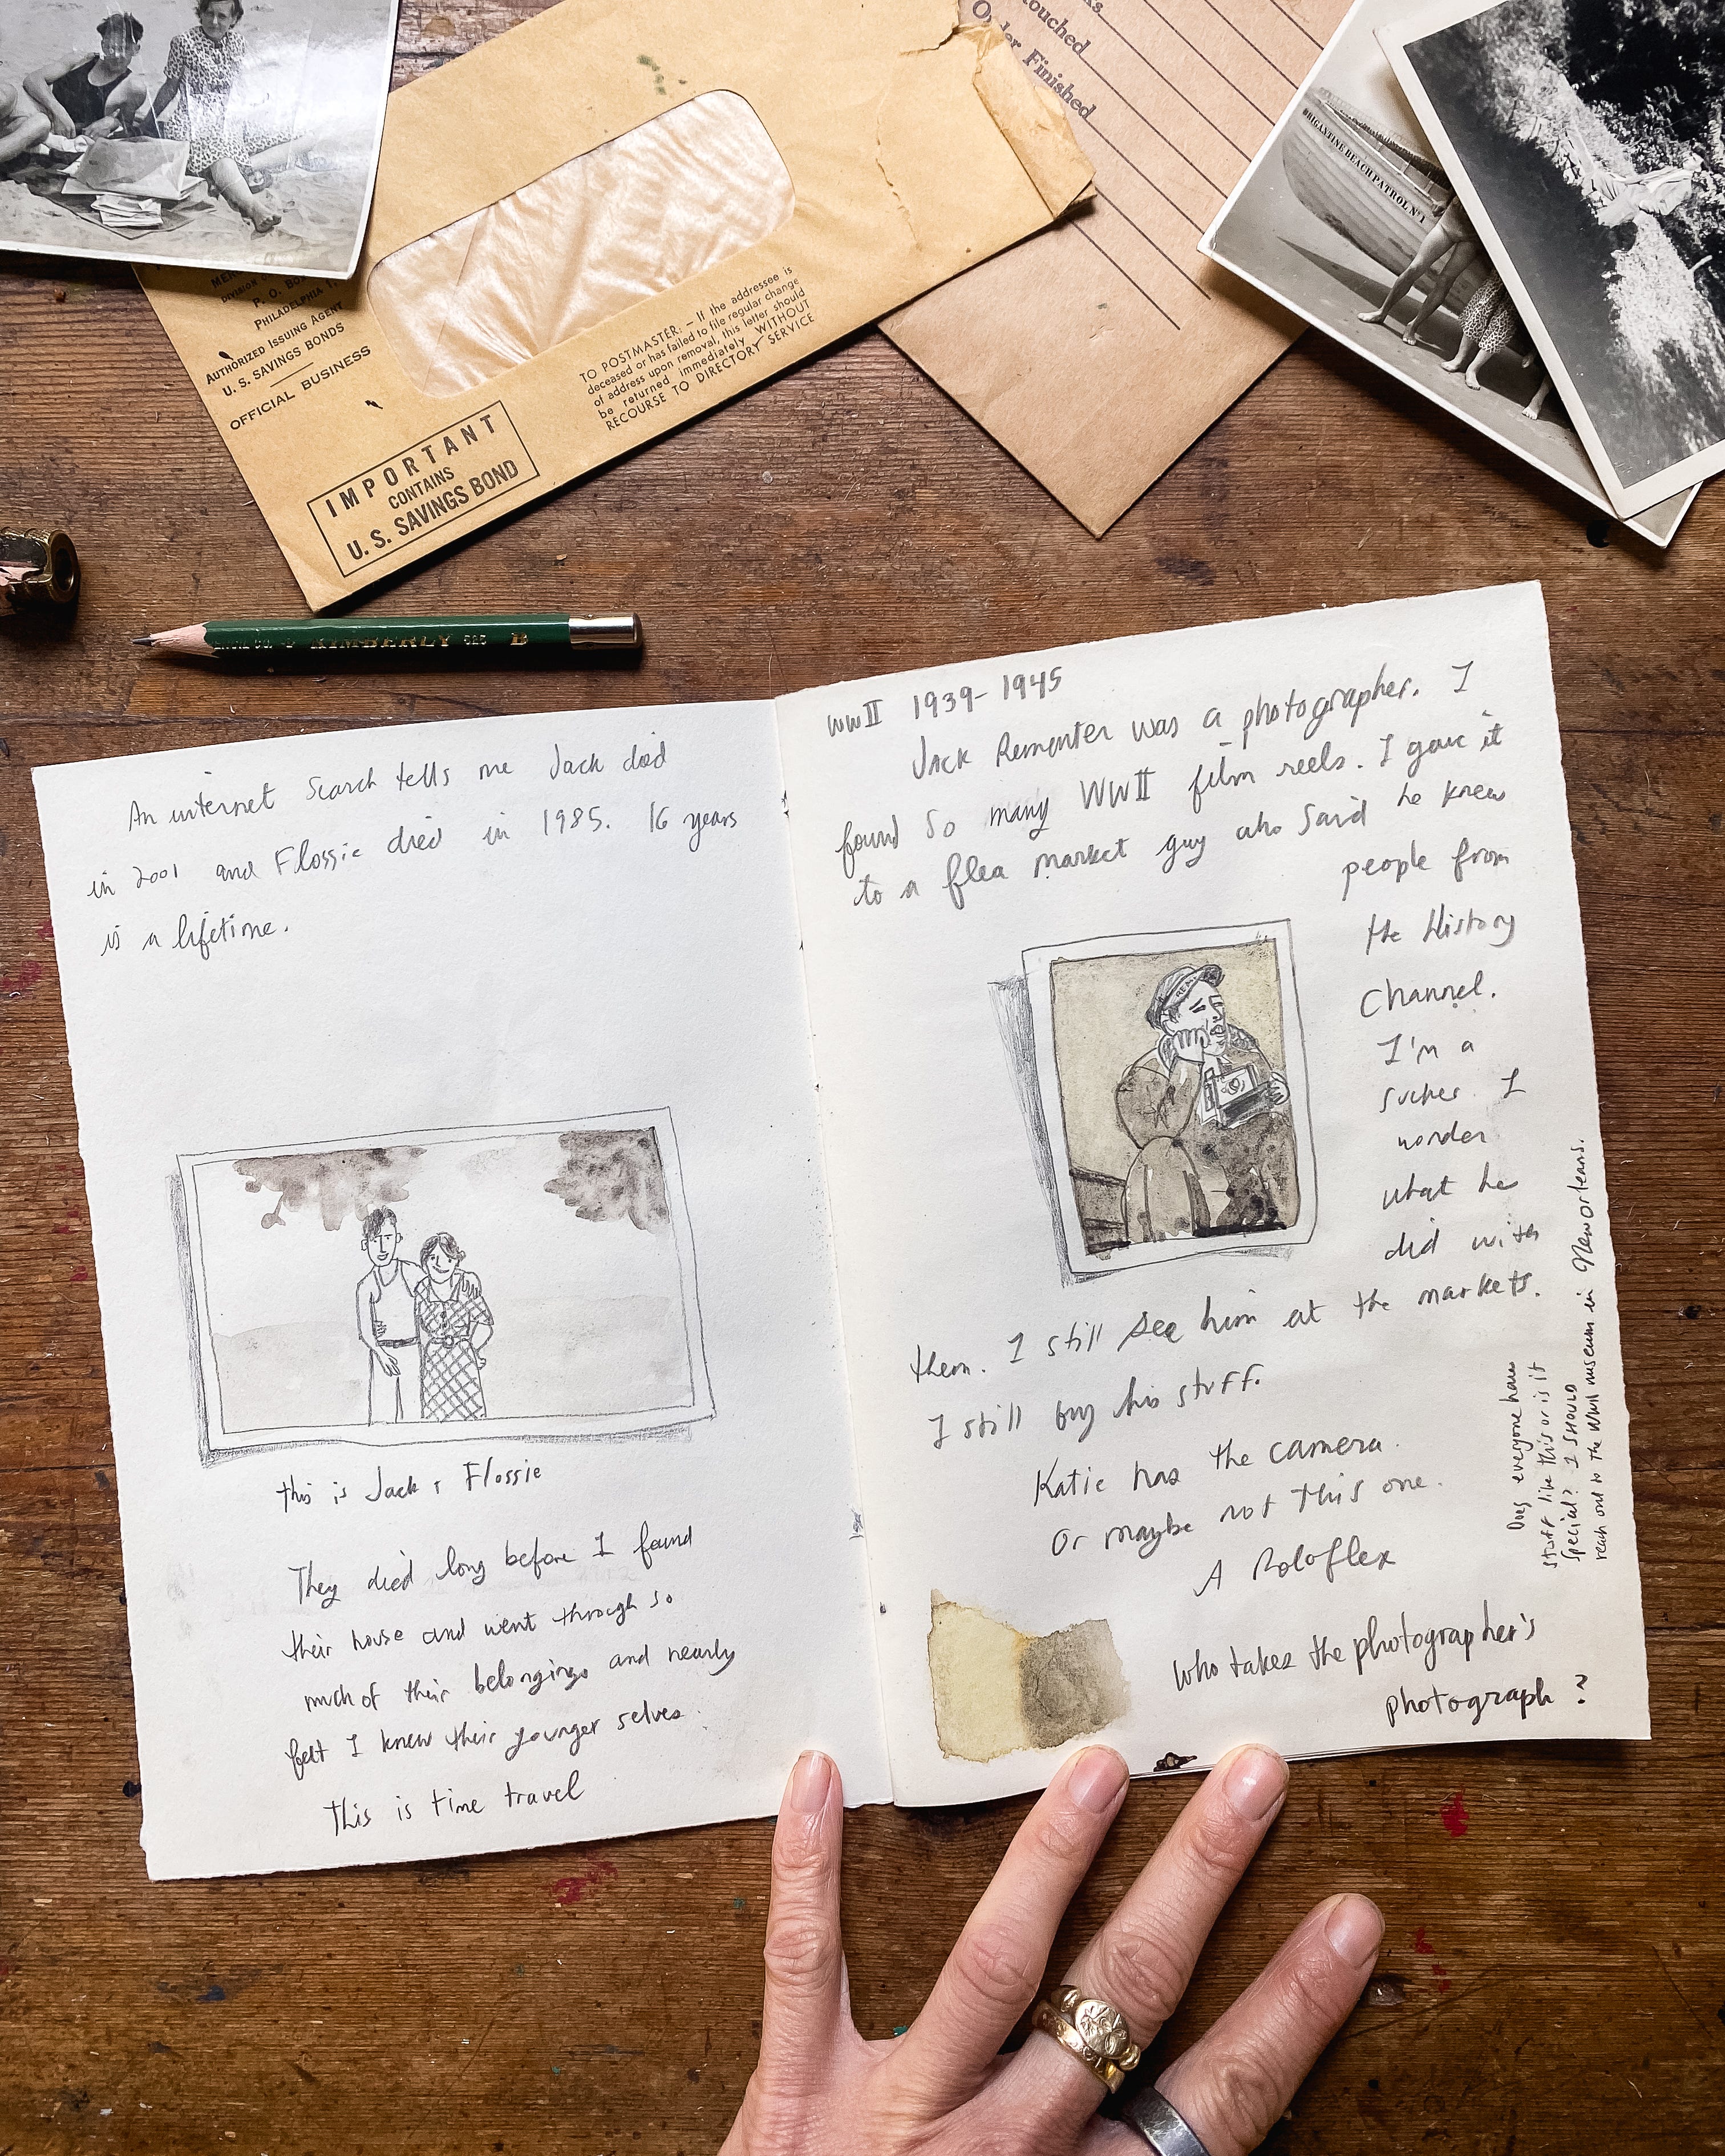 ks.
ouched
Order Finished
BRIGANTINE BEACH PATROL Nº1
P. O. BO
PHILADELPHIA 1,
AUTHORIZED ISSUING AGENT
U. S. SAVINGS BONDS
OFFICIAL BUSINESS
TO POSTMASTER: — If the addressee is
deceased or has failed to file regular change
of address upon removal, this letter should
be returned immediately WITHOUT
RECOURSE TO DIRECTORY SERVICE
IMPORTANT
CONTAINS
U. S. SAVINGS BOND
KIMBERLY 525 B
An internet search tells me Jack died
in 2001 and Flossie died in 1985. 16 years
is a lifetime.
this is Jack & Flossie
They died long before I found
their house and went through so
much of their belongings and nearly
felt I knew their younger selves.
This is time travel
WWII 1939-1945
Jack Rementer was a photographer. I
found so many WWII film reels. I gave it
to a flea market guy who said he knew
people from
the History
Channel.
I'm a
sucker. I
wonder
what he
did with
them. I still see him at the markets.
I still buy his stuff.
Katie has the camera.
Or maybe not this one.
A Roloflex
Who takes the photographer's
photograph?
Does everyone have
stuff like this or is it
special? I SHOULD
reach out to the WWII museum in New Orleans.